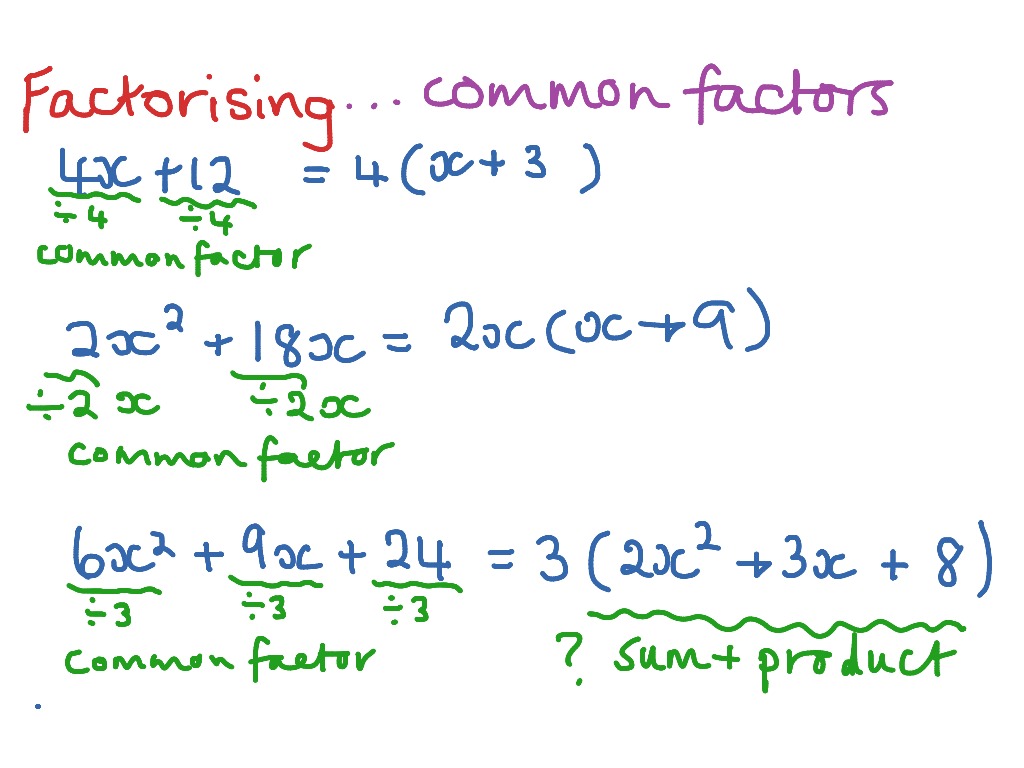 Factorising... common factors
4x + 12 = 4(x + 3)
÷4 ÷4
common factor
2x² + 18x = 2x(x + 9)
÷2x ÷2x
common factor
6x² + 9x + 24 = 3(2x² + 3x + 8)
÷3 ÷3 ÷3
common factor ? sum + product